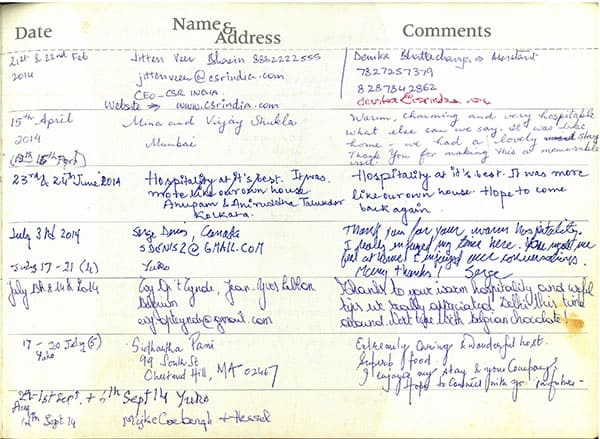 Date Name & Address Comments
21st & 22nd Feb
2014
Jitten Veer Bhasin 8822222555
jittenveer@csrindia.com
CEO - CSR INDIA
Website → www.csrindia.com
Devika Bhattacharya → Assistant
7827257379
8287842862
devika@csrindia.
15th April
2014
Mina and Vijay Shukla
Mumbai
Warm, charming and very hospitable
what else can we say. It was like
home - we had a lovely stay
Thank you for making this a memorable
visit.
23rd & 24th June 2014
Hospitality at it's best. It was
more like our own house
Anupam & Aniruddha
Kolkata.
Hospitality at it's best. It was more
like our own house. Hope to come
back again.
July 3rd 2014
Serge Denis, Canada
SDENIS2@GMAIL.COM
Thank you for your warm hospitality.
I really enjoyed my time here. You made me
feel at home! I enjoyed our conversations.
Many thanks! Serge
July 17 - 21 (4)
Yuko
July 2014
Jean-Yves
Belgium
@gmail.com
Thanks to your warm hospitality and useful
tips we really appreciated Delhi this time
around. Just like with Belgian chocolate!
17 - 20 July (5)
Yuko
Sidhartha Pani
99 South St
Chestnut Hill, MA 02467
Extremely caring & wonderful host.
Superb food.
I enjoyed my stay & your Company
Hope to
1st Sept. + 5th Sept 14 Yuko
Aug
12th Sept 14
+ Hessel